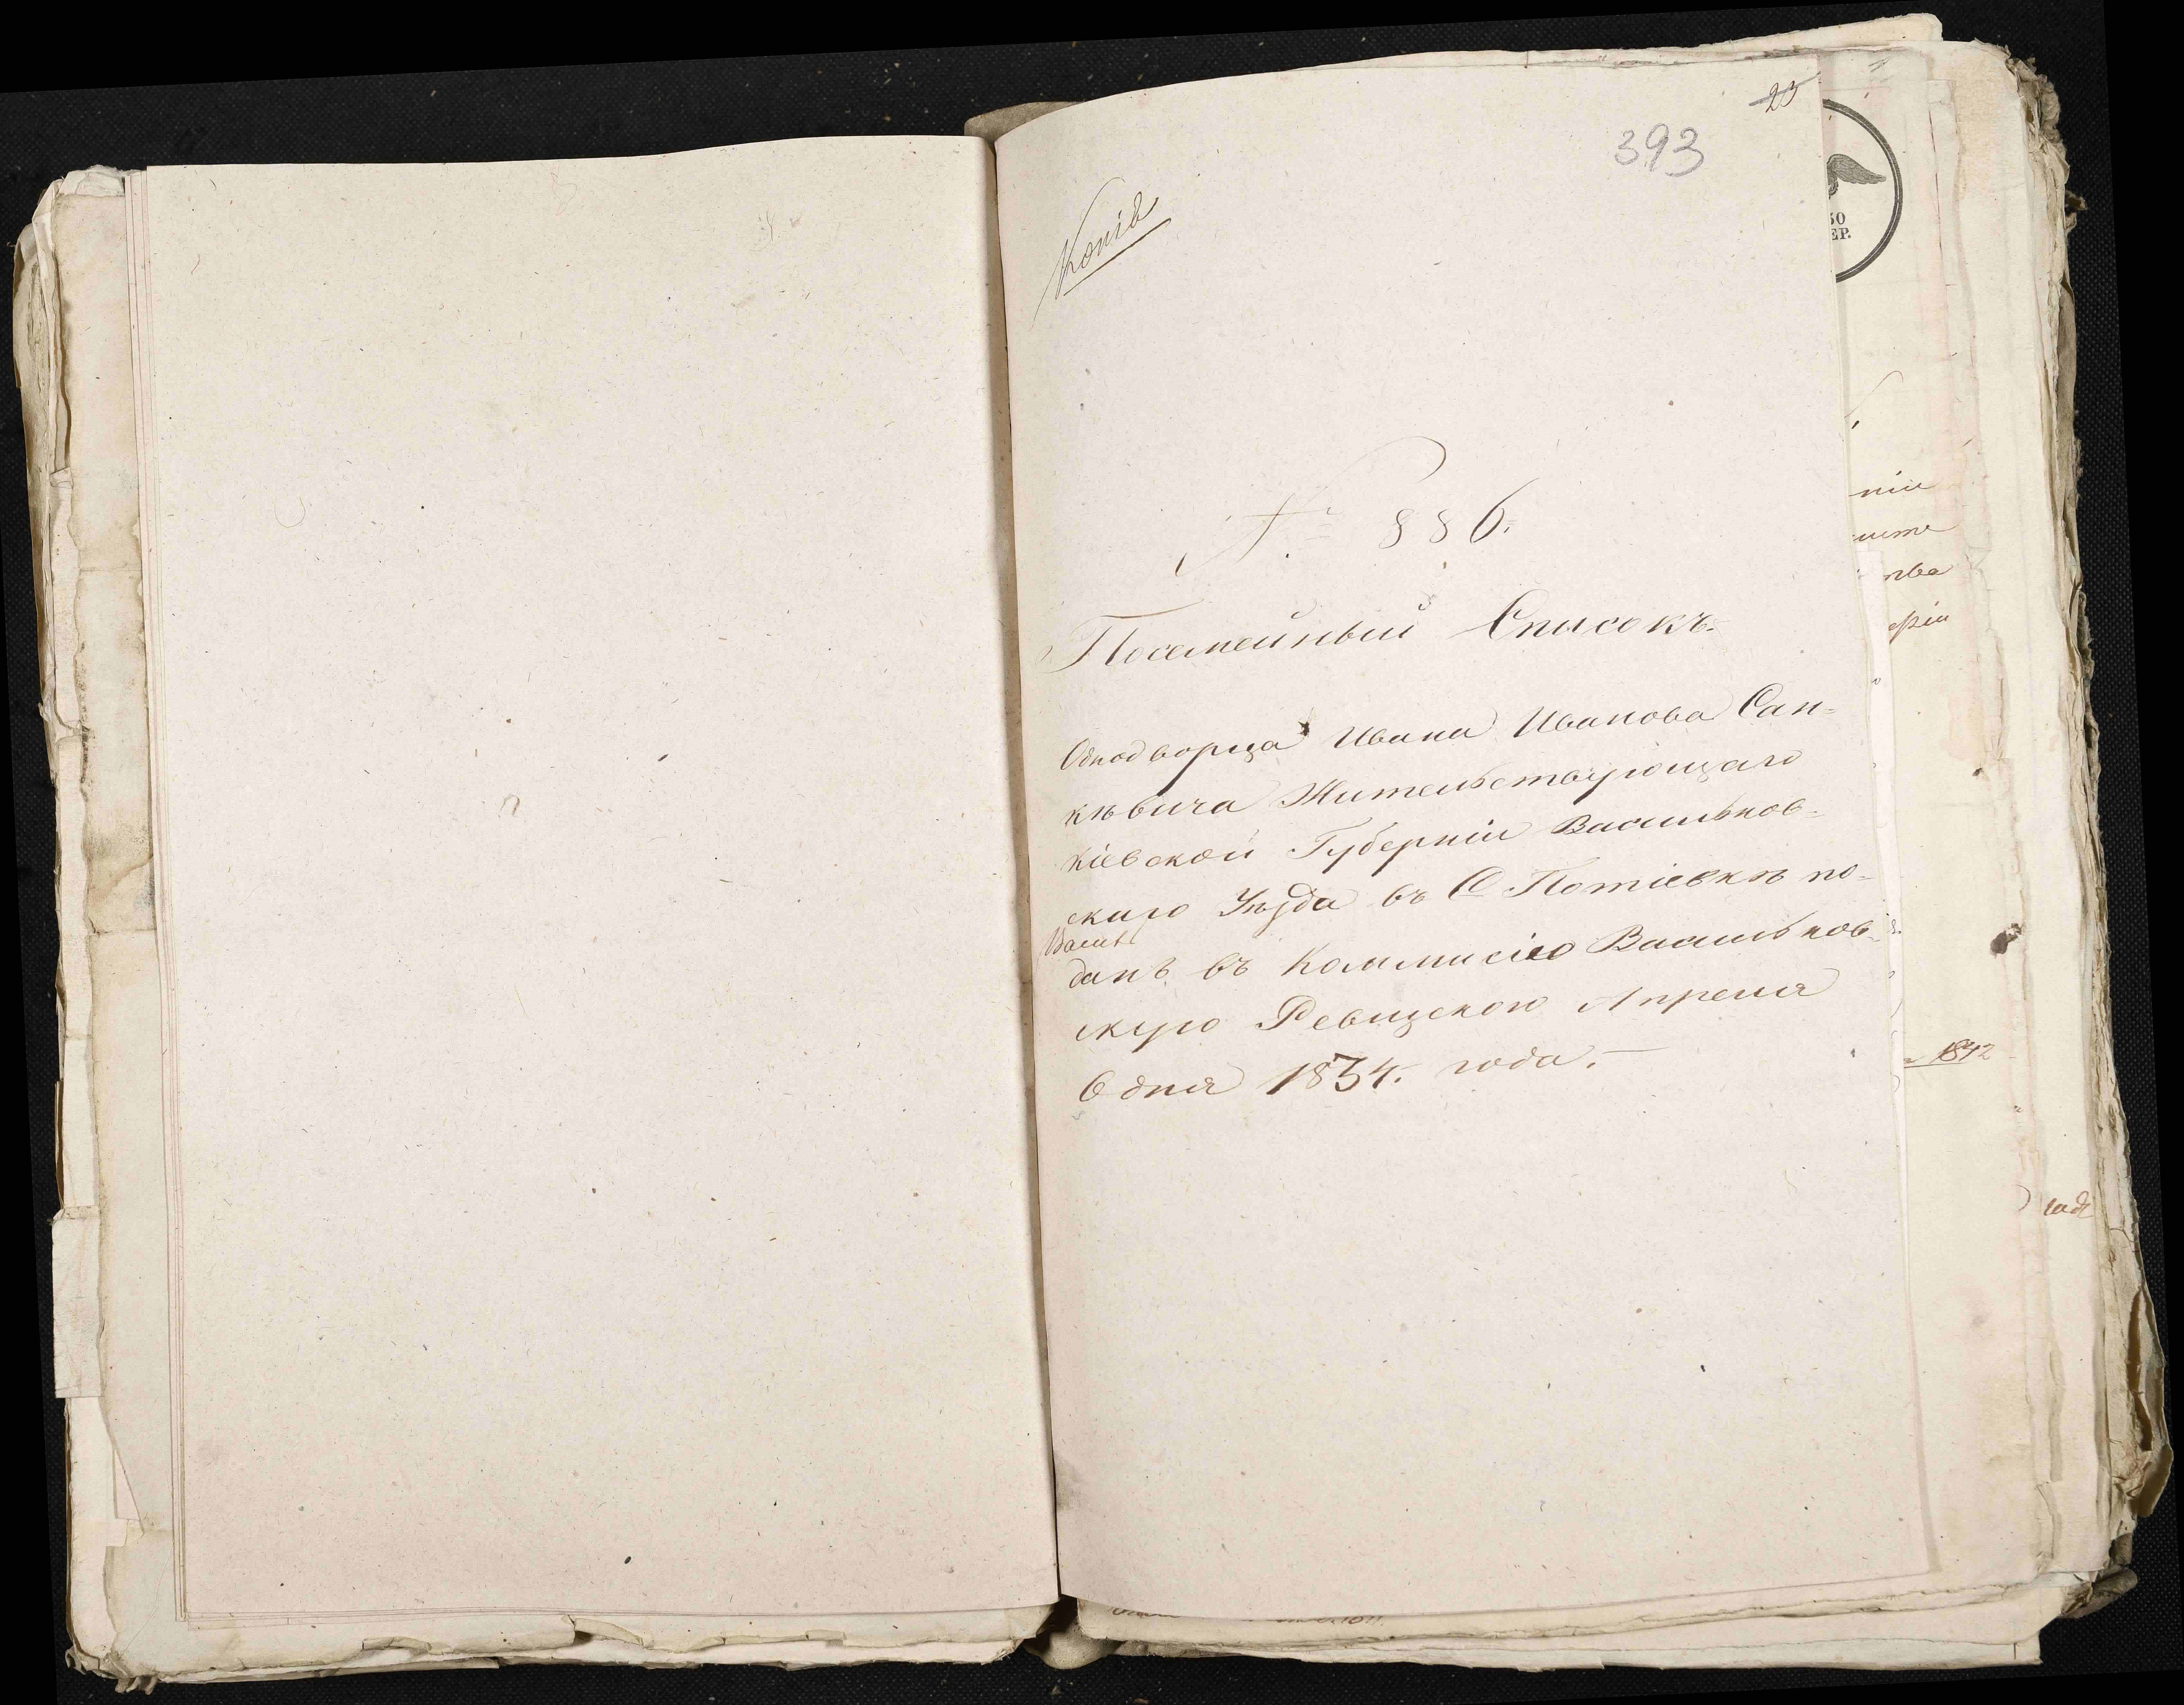 23
393
Копія
№ 886.
Посемейный Списокъ.
Однодворца Ивана Иванова Сан=
кѣвича Жительствующаго
Кіевской Губерніи Васильков=
скаго Уѣзда въ С Потіевкѣ по=
данъ въ Коммисію Васильков=
скую Ревизскою Апреля
6 дня 1834. года.
50
ЕР.
ніи
тва
1842